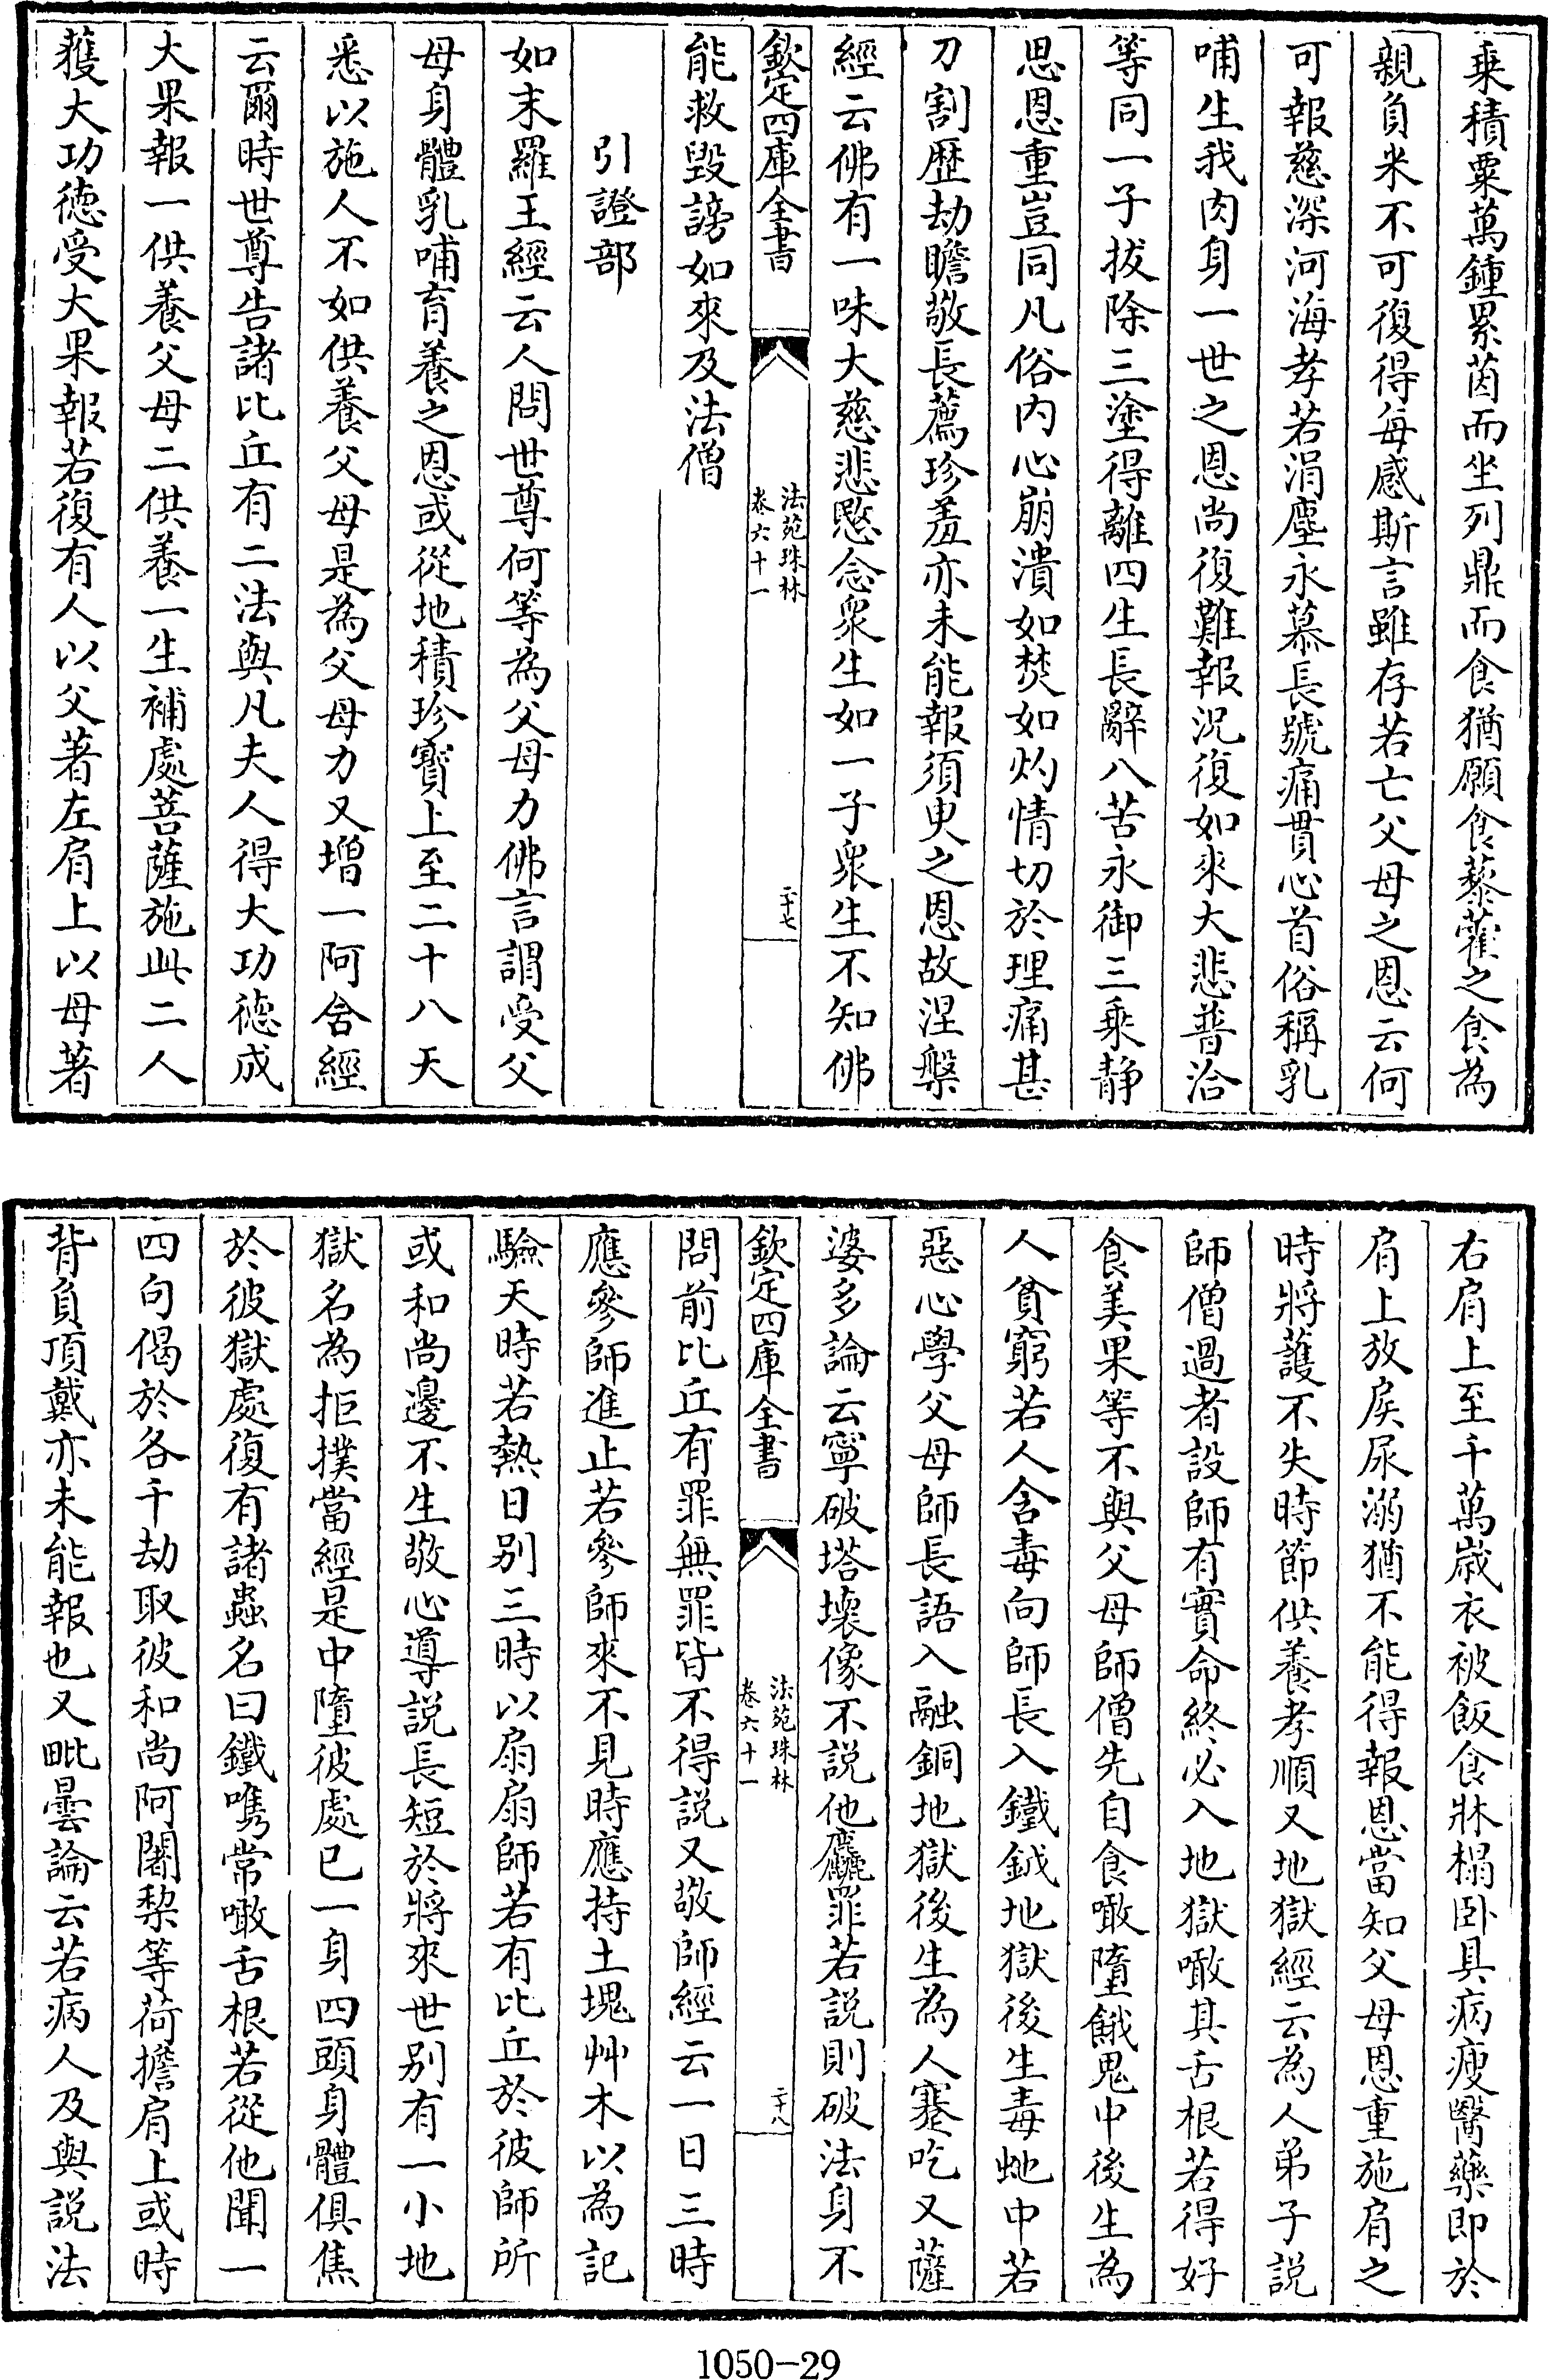 乗積粟萬鍾累茵而坐列鼎而食猶願食藜藿之食為
親負米不可復得每感斯言雖存若亡父母之恩云何
可報慈深河海孝若涓塵永慕長號痛貫心首俗稱乳
哺生我肉身一世之恩尚復難報況復如來大悲普洽
等同一子拔除三塗得離四生長辭八苦永御三乘静
思恩重豈同凡俗内心崩潰如焚如灼情切於理痛甚
刀割歴劫瞻敬長薦珍羞亦未能報須臾之恩故涅槃
經云佛有一味大慈悲愍念衆生如一子衆生不知佛
欽定四庫全書
法苑珠林
卷六十一
二十七
能救毀謗如來及法僧
引證部
如末羅王經云人問世尊何等為父母力佛言謂受父
母身體乳哺育養之恩或從地積珍寳上至二十八天
悉以施人不如供養父母是為父母力又增一阿含經
云爾時世尊告諸比丘有二法與凡夫人得大功徳成
大果報一供養父母二供養一生補處菩薩施此二人
獲大功徳受大果報若復有人以父著左肩上以母著
右肩上至千萬歲衣被飯食牀榻卧具病瘦醫藥即於
肩上放屎尿溺猶不能得報恩當知父母恩重施肩之
時將護不失時節供養孝順又地獄經云為人弟子説
師僧過者設師有實命終必入地獄噉其舌根若得好
食美果等不與父母師僧先自食噉墮餓鬼中後生為
人貧窮若人含毒向師長入鐵鉞地獄後生毒虵中若
惡心學父母師長語入融銅地獄後生為人蹇吃又薩
婆多論云寧破塔壞像不説他麤罪若説則破法身不
欽定四庫全書
法苑珠林
卷六十一
二十八
問前比丘有罪無罪皆不得説又敬師經云一日三時
應參師進止若參師來不見時應持土塊艸木以為記
驗天時若熱日别三時以扇扇師若有比丘於彼師所
或和尚邊不生敬心導説長短於將來世别有一小地
獄名為拒撲當經是中墮彼處已一身四頭身體俱焦
於彼獄處復有諸蟲名曰鐵㗱常噉舌根若從他聞一
四句偈於各千劫取彼和尚阿闍棃等荷擔肩上或時
背負頂戴亦未能報也又毗曇論云若病人及與説法
1050-29